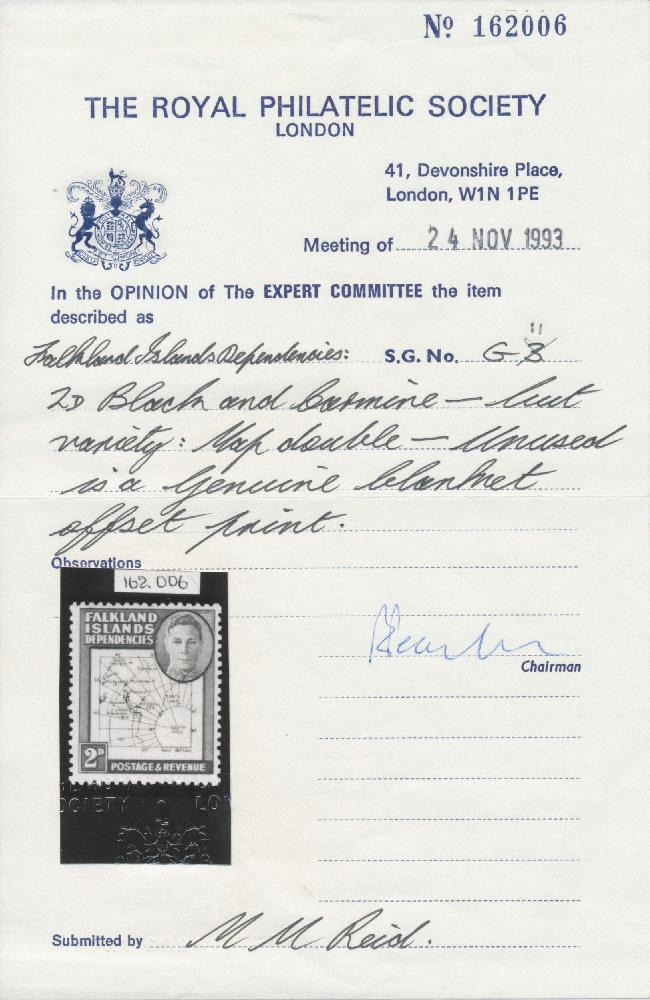 Nº 162006
THE ROYAL PHILATELIC SOCIETY
LONDON
41, Devonshire Place,
London, W1N 1PE
Meeting of 24 NOV 1993
In the OPINION of The EXPERT COMMITTEE the item
described as
Falkland Islands Dependencies: S.G. No. G 11
2D Black and Carmine – but
variety: Map double – Unused
is a genuine blanket
offset print.
Observations
162.006
FALKLAND
ISLANDS
DEPENDENCIES
2D
POSTAGE & REVENUE
Chairman
Submitted by M M Reid.